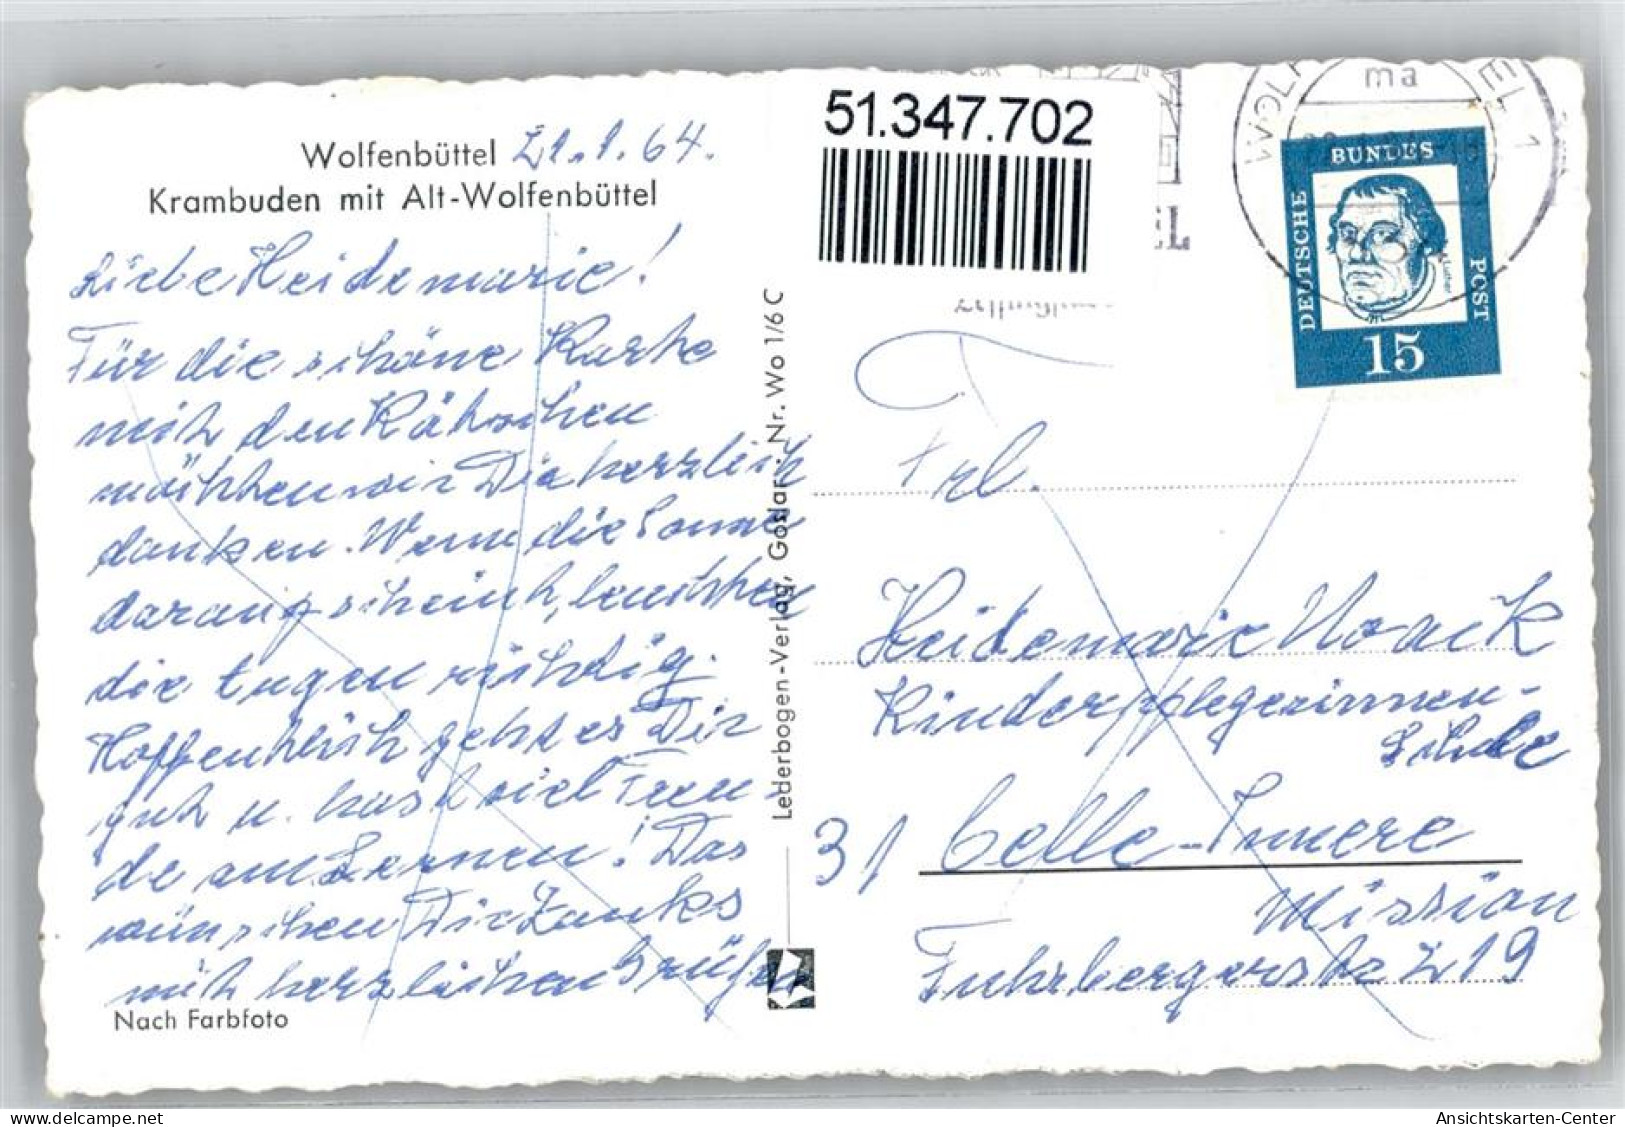 Wolfenbüttel 21.1.64.
Krambuden mit Alt-Wolfenbüttel
Liebe Heidemarie!
Für die schöne Karte
mit den Kätzchen
möchten wir Dir herzlich
danken. Wenn die Sonne
darauf scheint, leuchten
die Augen richtig.
Hoffentlich geht es Dir
gut u. hast viel Freu-
de am Lernen! Das
wünschen Dir Zanks
mit herzlichen Grüßen
Nach Farbfoto
Lederbogen-Verlag, Goslar · Nr. Wo 1/6 C
51.347.702
EL 1
ma
DEUTSCHE
BUNDES
POST
Luther
15
Frl.
Heidemarie Noack
Kinderpflegerinnen-
Schule
31 Celle-Innere
Mission
Fuhrbergerstr 219
ansichtskarten-center.de
Ansichtskarten-Center